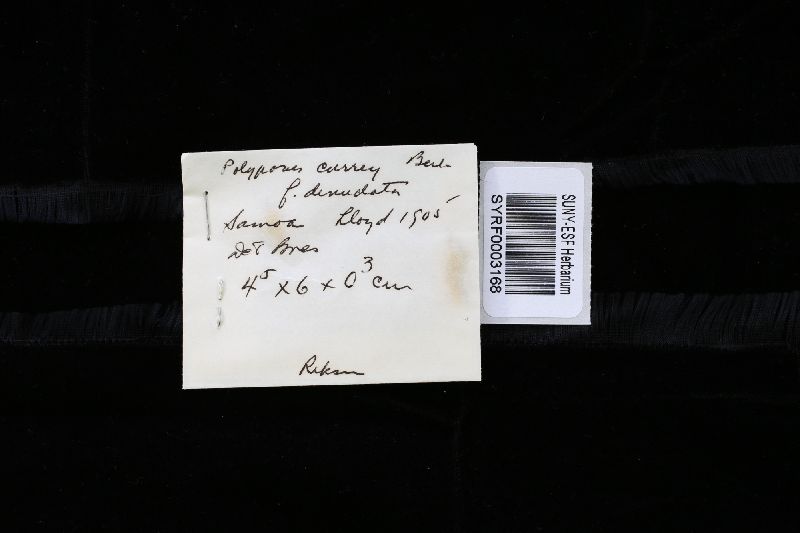 Polyporus currey Berk
f. denudata
Samoa Lloyd 1905
Det Bres
4⁵ x 6 x 0³ cm
SUNY-ESF Herbarium
SYRF0003168